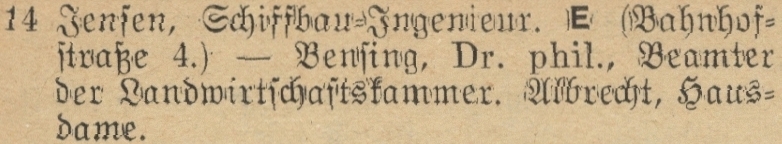 14 Jensen, Schiffbau-Ingenieur. E (Bahnhof-
straße 4.) — Bensing, Dr. phil., Beamter
der Landwirtschaftskammer. Albrecht, Haus-
dame.